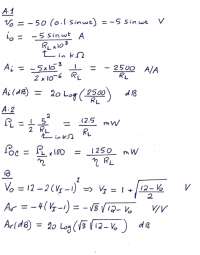 A.1
V₀ = -50 (0.1 sin ωt) = -5 sin ωt V
i₀ = -5 sin ωt / (R_L × 10³) A
in kΩ
Aᵢ = (-5×10⁻³ / 2×10⁻⁶) (1 / R_L) = - 2500 / R_L A/A
Aᵢ(dB) = 20 Log (2500 / R_L) dB
A.2
P_L = (1/2) (5² / R_L) = 12.5 / R_L mW
in kΩ
P_DC = (P_L / η) × 100 = 1250 / (η R_L) mW
B
V₀ = 12 - 2 (V_I - 1)² ⇒ V_I = 1 + √((12 - V₀) / 2) V
Aᵥ = -4 (V_I - 1) = -√8 √(12 - V₀) V/V
Aᵥ(dB) = 20 Log (√8 √(12 - V₀)) dB